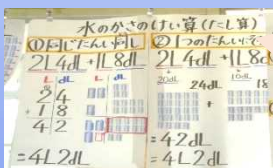 水のかさのけい算(たし算)
①同じたんい同し
2L4dL+1L8dL
L dL
2 4
+1 8
4 2
=4L2dL
②1つのたんいに
2L4dL+1L8dL
20dL 10dL
24dL 18
+
=42dL
=4L2dL